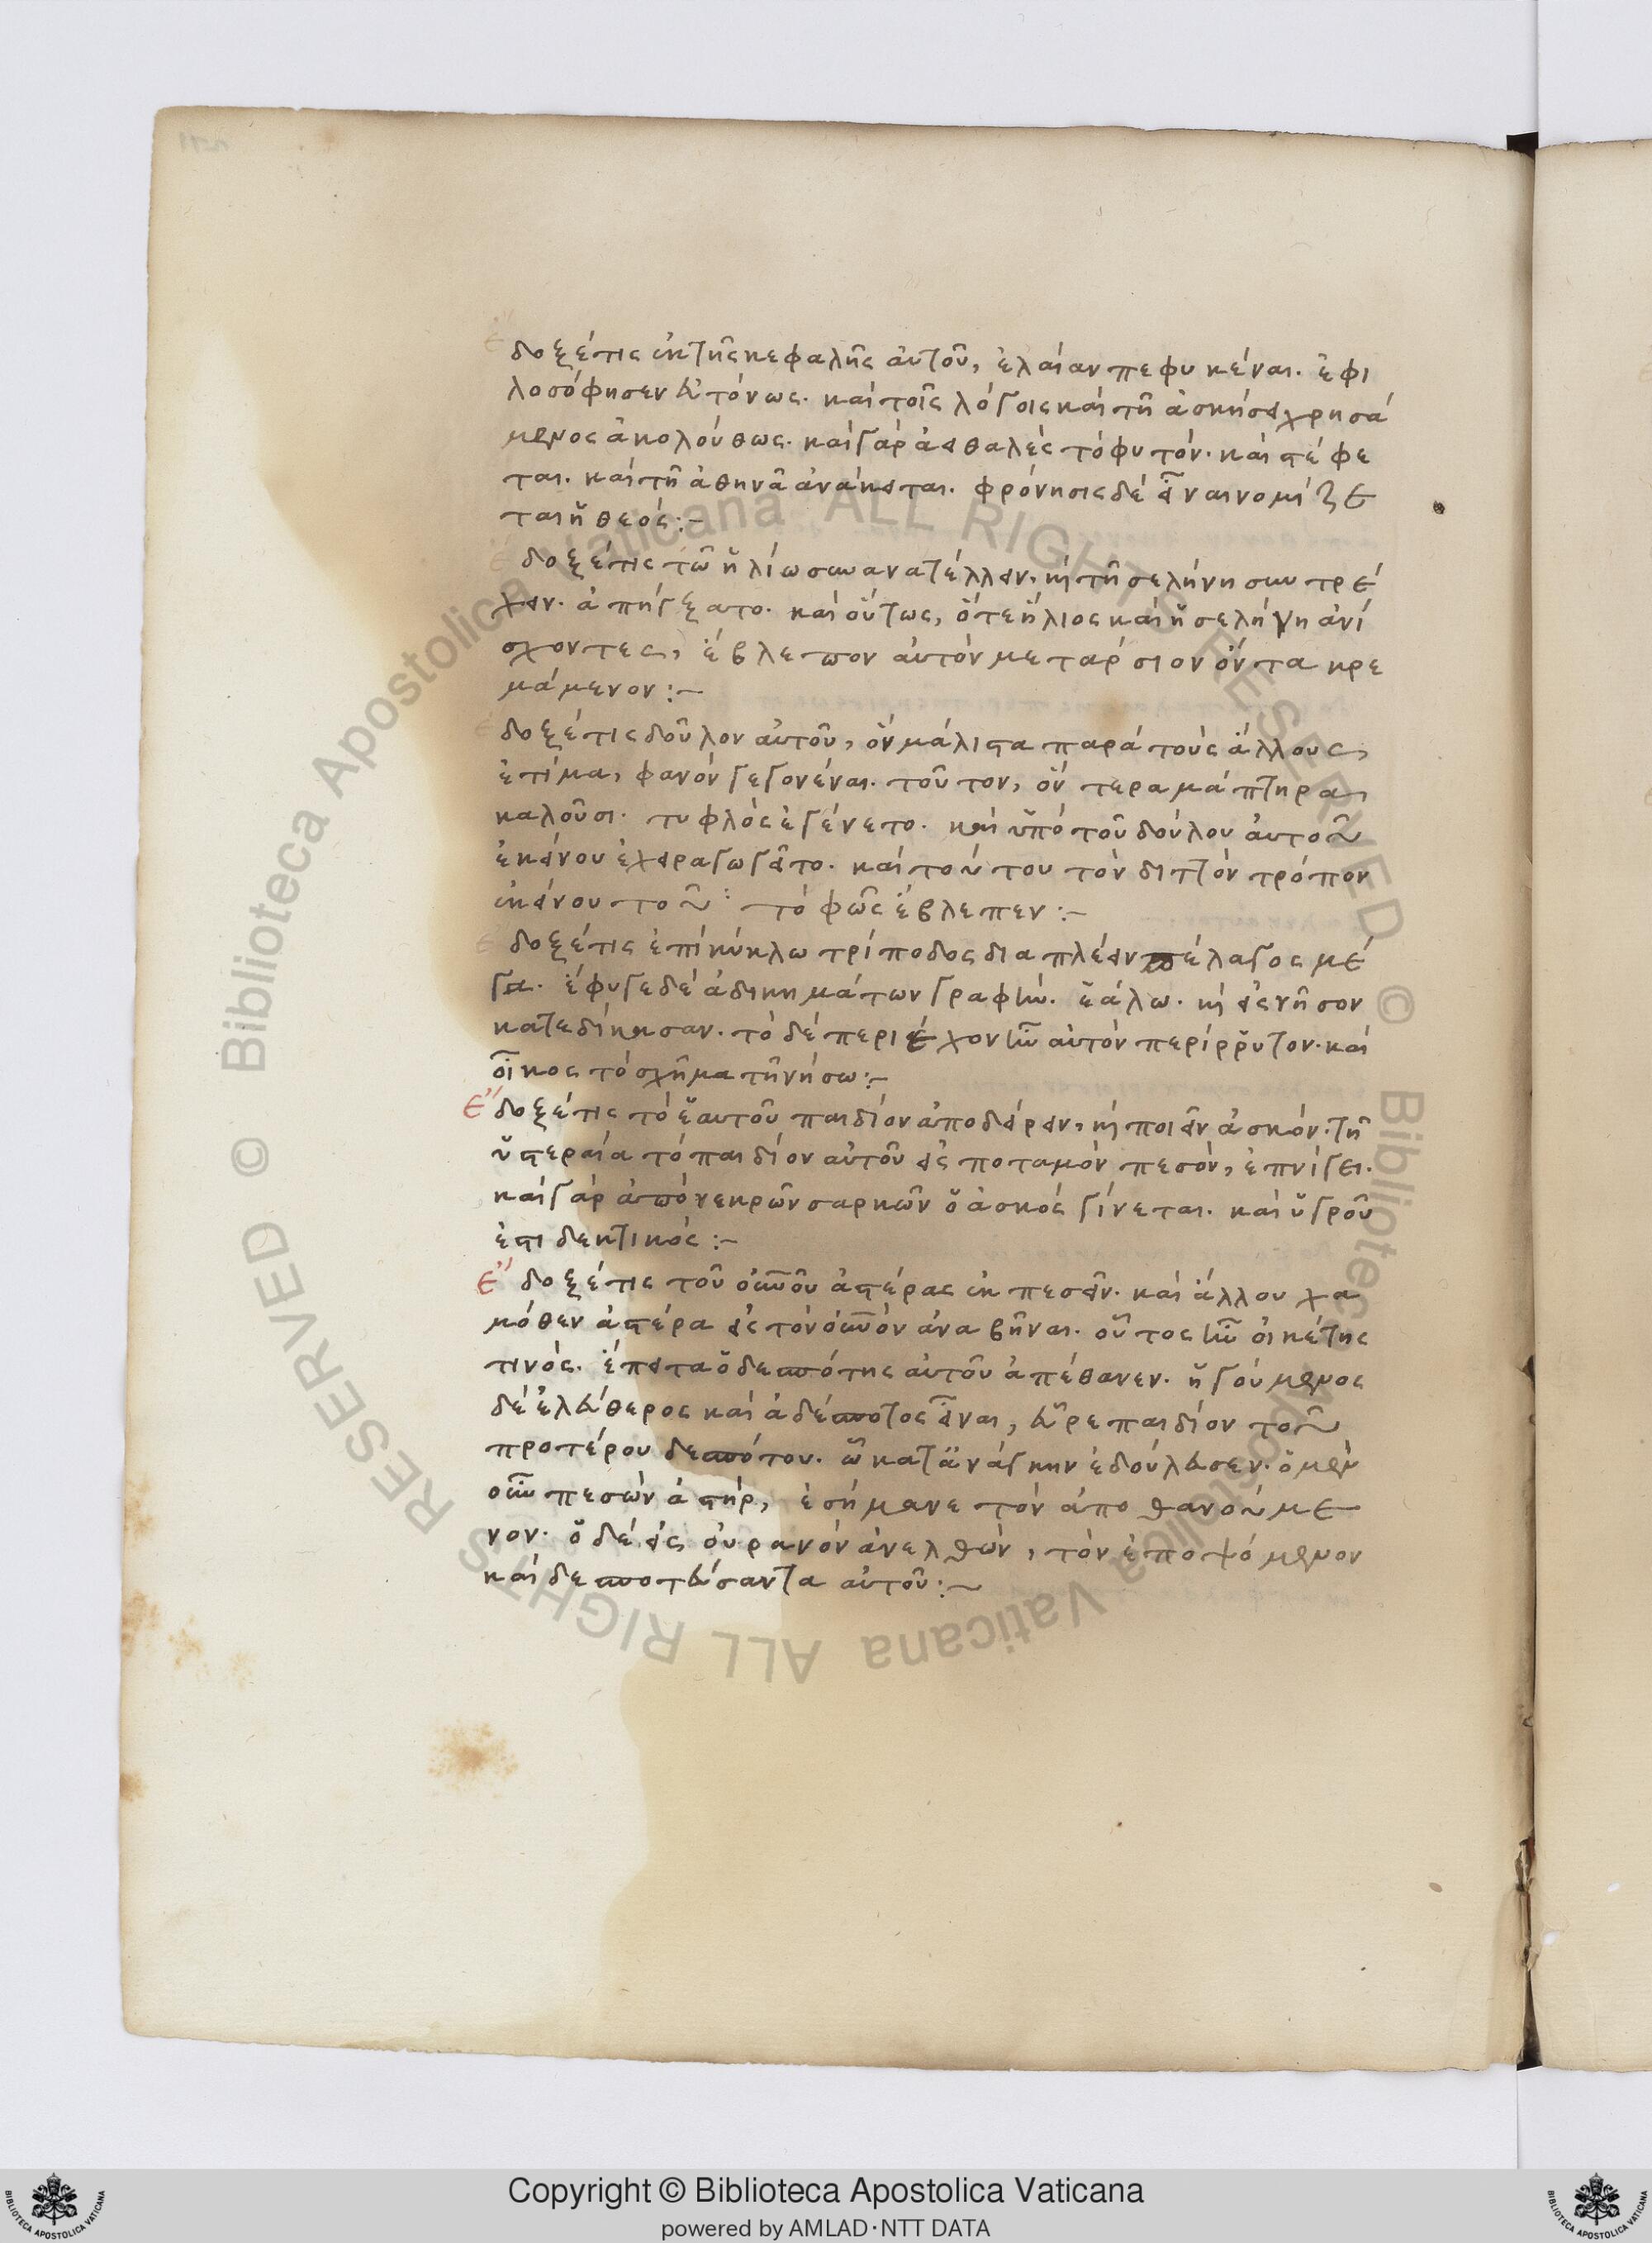 Ἔδοξέ τις ἐκ τῆς κεφαλῆς αὐτοῦ, ἐλαίαν πεφυκέναι. ἐφι
λοσόφησεν εὐτόνως. καὶ τοῖς λόγοις καὶ τῇ ἀσκήσει χρησά
μενος ἀκολούθως. καὶ γὰρ ἀειθαλὲς τὸ φυτόν. καὶ στέφε
ται. καὶ τῇ ἀθηνᾷ ἀνάκειται. φρόνησις δὲ εἶναι νομίζε
ται ἡ θεός:~
Ἔδοξέ τις τῷ ἡλίῳ συνανατέλλειν, καὶ τῇ σελήνῃ συντρέ
χειν. ἀπήγξατο. καὶ οὕτως, ὅτε ἥλιος καὶ ἡ σελήνη ἀνί
σχοντες, ἔβλεπον αὐτὸν μετάρσιον ὄντα κρε
μάμενον:~
Ἔδοξέ τις δοῦλον αὐτοῦ, ὃν μάλιστα παρὰ τοὺς ἄλλους,
ἐτίμα, φανὸν γεγονέναι. τοῦτον, ὃν
καλοῦσι. τυφλὸς ἐγένετο. καὶ ὑπὸ τοῦ δούλου αὐτοῦ
ἐκείνου ἐχειραγωγεῖτο. καὶ τούτου τὸν διττὸν τρόπον
ἐκείνου τοῦ τὸ φῶς ἔβλεπεν:~
Ἔδοξέ τις ἐπὶ κύκλῳ τρίποδος διαπλέειν πέλαγος μέ
γα. ἔφυγε δὲ ἀδικημάτων γραφήν. ἑάλω. καὶ εἰς νῆσον
κατεδίκασαν. τὸ δὲ περιέχον ἦν αὐτὸν περίρρυτον. καὶ
οἶκος τὸ σχῆμα τῇ νήσῳ:~
Ἔδοξέ τις τὸ ἑαυτοῦ παιδίον ἀποδείρειν, καὶ ποιεῖν ἀσκόν. τῇ
ὑστεραίᾳ τὸ παιδίον αὐτοῦ εἰς ποταμὸν πεσὸν, ἐπνίγει.
καὶ γὰρ ἀπὸ νεκρῶν σαρκῶν ὁ ἀσκὸς γίνεται. καὶ ὑγροῦ
ἐστι δεκτικός:~
Ἔδοξέ τις τοῦ οὐνοῦ ἀστέρας ἐκπεσεῖν. καὶ ἄλλου χα
μόθεν ἀστέρα εἰς τὸν οὐνὸν ἀναβῆναι. οὗτος ἦν οἰκέτης
τινός. ἔπειτα ὁ δεσπότης αὐτοῦ ἀπέθανεν. ἡγούμενος
δὲ ἐλεύθερος καὶ ἀδέσποτος εἶναι, εὗρε παιδίον τοῦ
προτέρου δεσπότου. ᾧ κατ᾽ ἀνάγκην ἐδούλευσεν. ὁ μὲν
οὖν πεσὼν ἀστήρ, ἐσήμανε τὸν ἀποθανούμε
νον. ὁ δὲ εἰς οὐρανὸν ἀνελθών, τὸν ἐποψόμενον
καὶ δεσποτεύσαντα αὐτοῦ:~
Biblioteca Apostolica Vaticana ALL RIGHTS RESERVED ©
Biblioteca Apostolica Vaticana ALL RIGHTS RESERVED ©
Copyright © Biblioteca Apostolica Vaticana
powered by AMLAD·NTT DATA
BIBLIOTECA APOSTOLICA VATICANA
BIBLIOTECA APOSTOLICA VATICANA